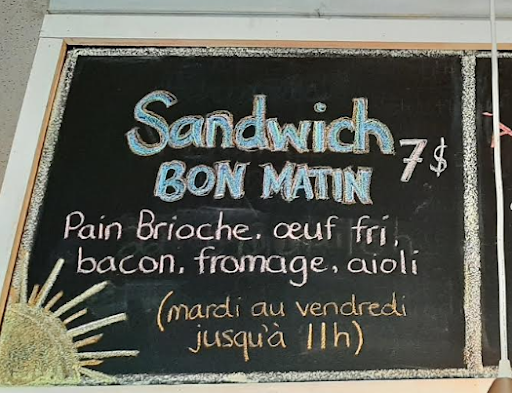 Sandwich
BON MATIN 7$
Pain Brioche, œuf fri,
bacon, fromage, aioli
(mardi au vendredi
jusqu'à 11h)